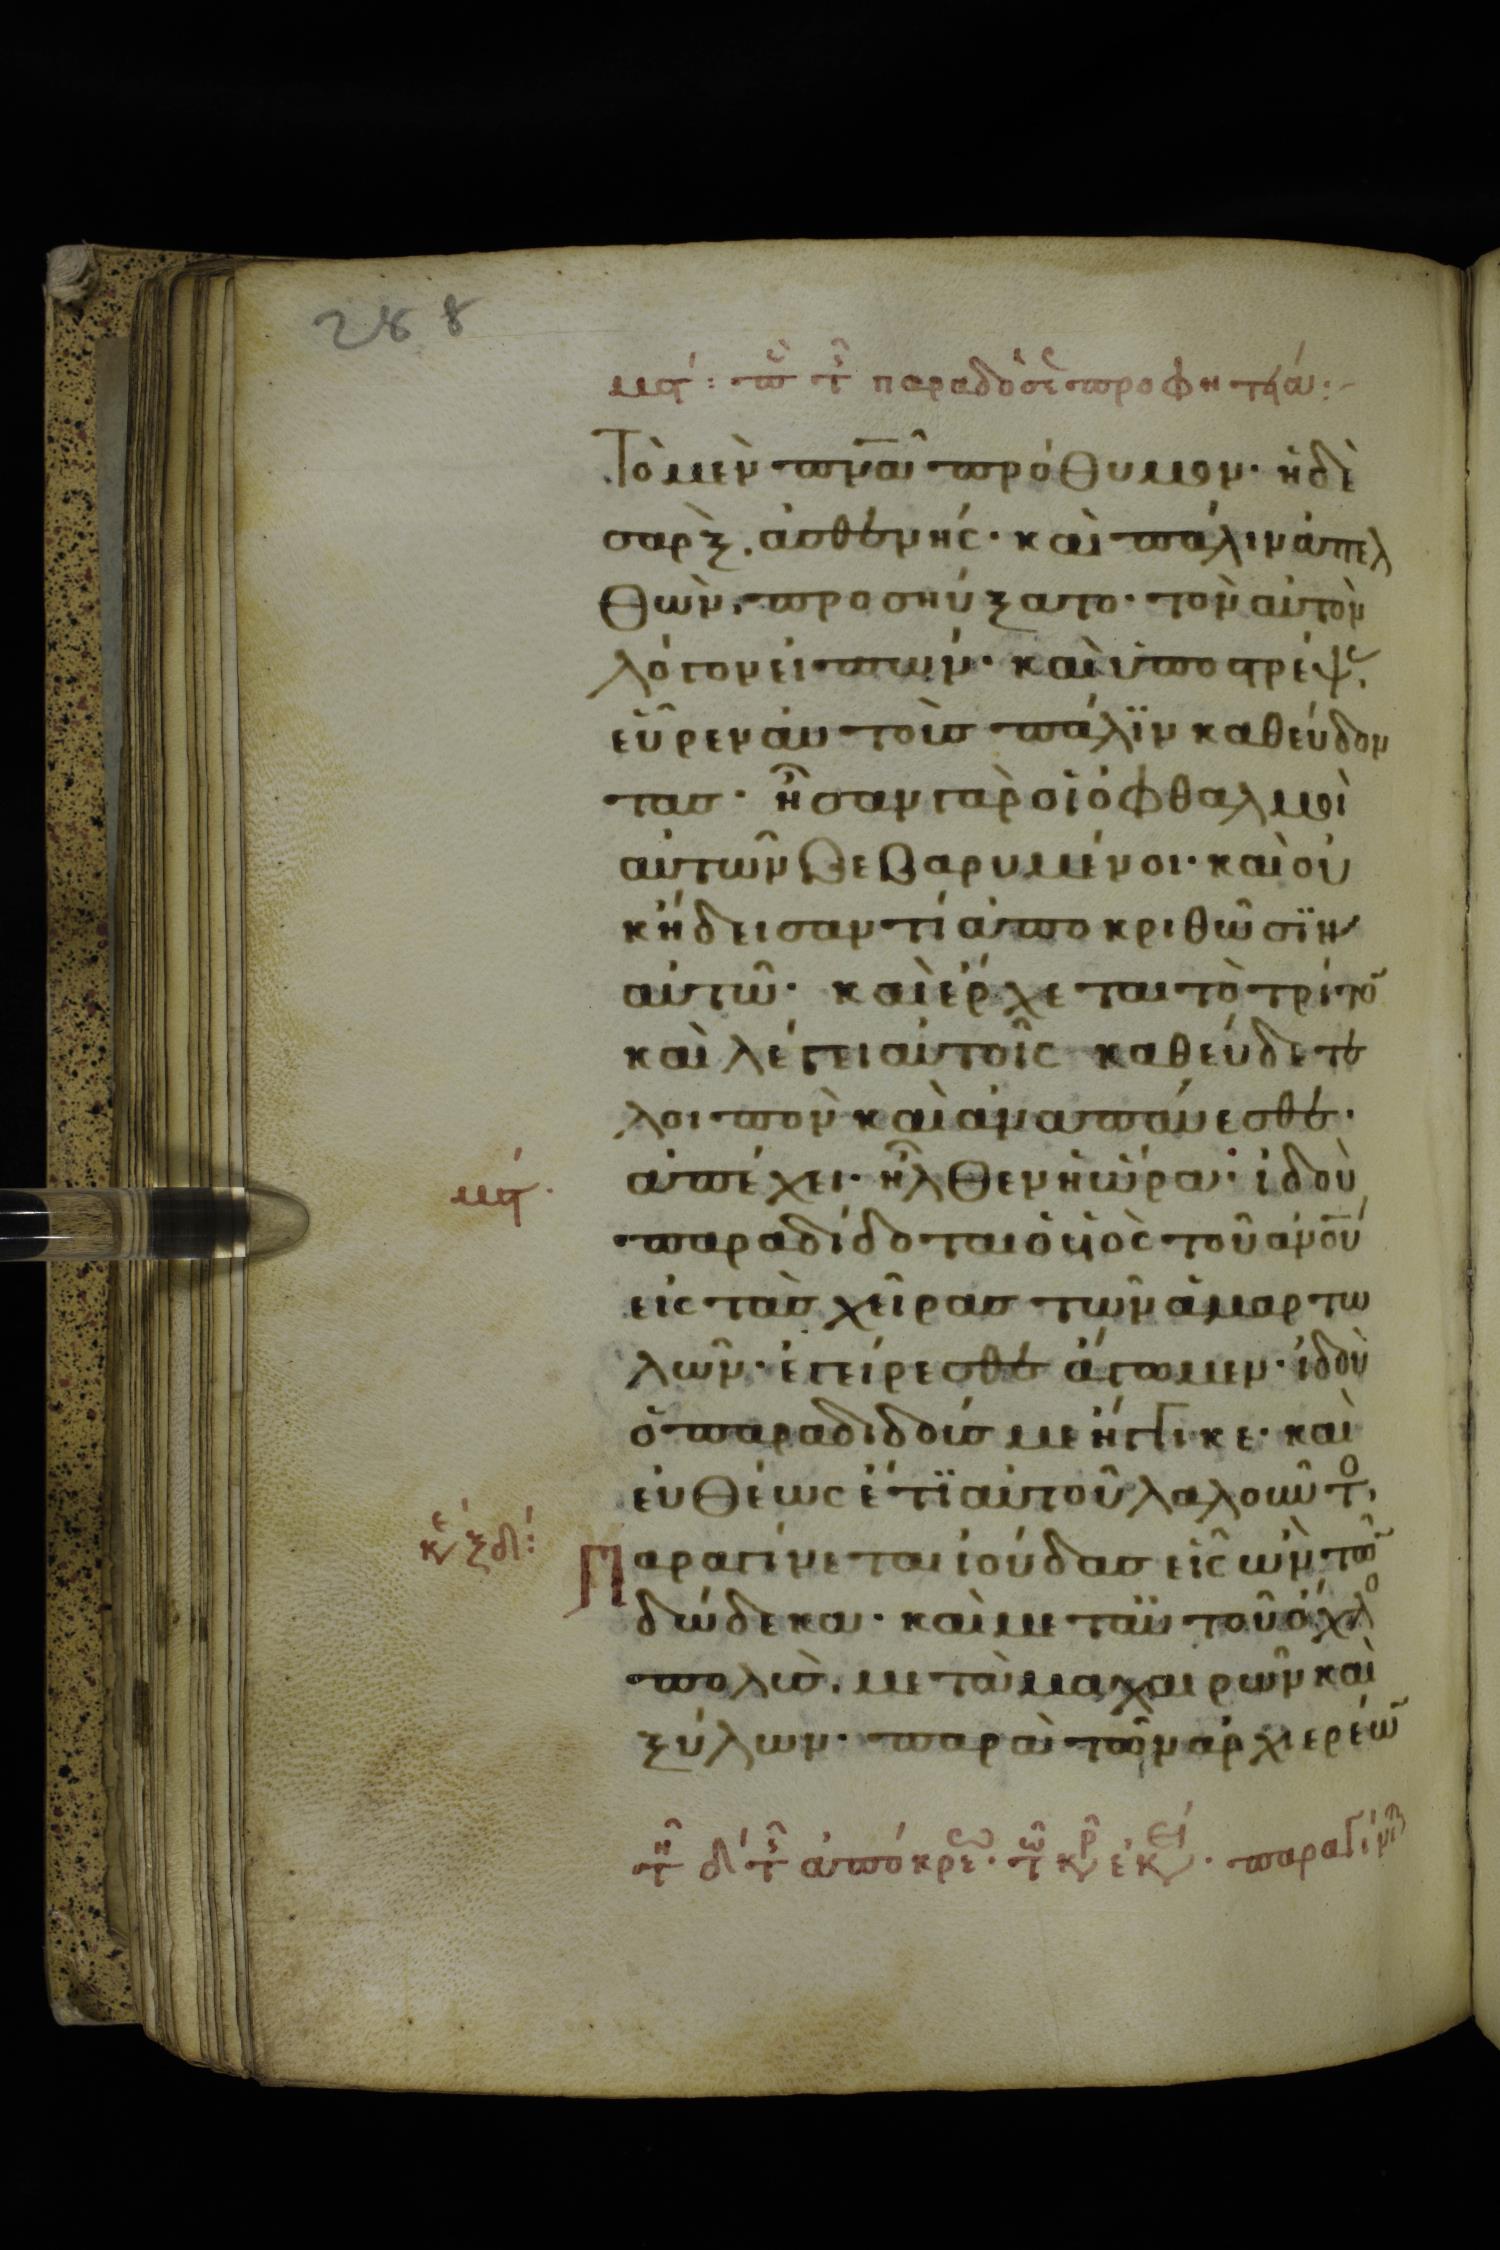 288
μϛ´: πε τ παραδόσε προφητεία:
Τὸ μὲν πνᾶ πρόθυμον· ἡ δὲ
σαρξ, ἀσθενής· καὶ πάλιν ἀπελ
θὼν, προσηύξατο· τὸν αὐτὸν
λόγον εἰπών· καὶ ὑποστρέψ,
εὗρεν αὐτοὺσ πάλϊν καθεύδον
τασ· ἦσαν γὰρ οἱ ὀφθαλμοὶ
αὐτῶν βεβαρυμένοι· καὶ οὐ
κ ἤδεισαν τί ἀποκριθῶσϊν
αὐτῶ· καὶ ἔρχεται τὸ τρίτο
καὶ λέγει αὐτοῖς καθεύδετε
λοιπὸν καὶ ἀναπάυεσθε·
ἀπέχει· ἦλθεν ἡ ὥρα· ἰδοὺ
παραδίδοται ὁ ὑιὸς τοῦ ἀνού
εἰς τὰσ χεῖρασ τῶν ἁμαρτω
λῶν· ἐγείρεσθε ἄγωμεν· ἰδοὺ
ὁ παραδιδούσ με ἤγγικε· καὶ
εὐθέως ἔτϊ αὐτοῦ λαλοῦντο,
Παραγίνεται ἰούδασ εἷς ὢν τῶ
δώδεκα· καὶ μετ αὐτοῦ ὄχλο
πολὺσ, μετὰ μαχαιρῶν καὶ
ξύλων· παρὰ τῶν ἀρχιερέω
μϛ´·
κε ξδ´: